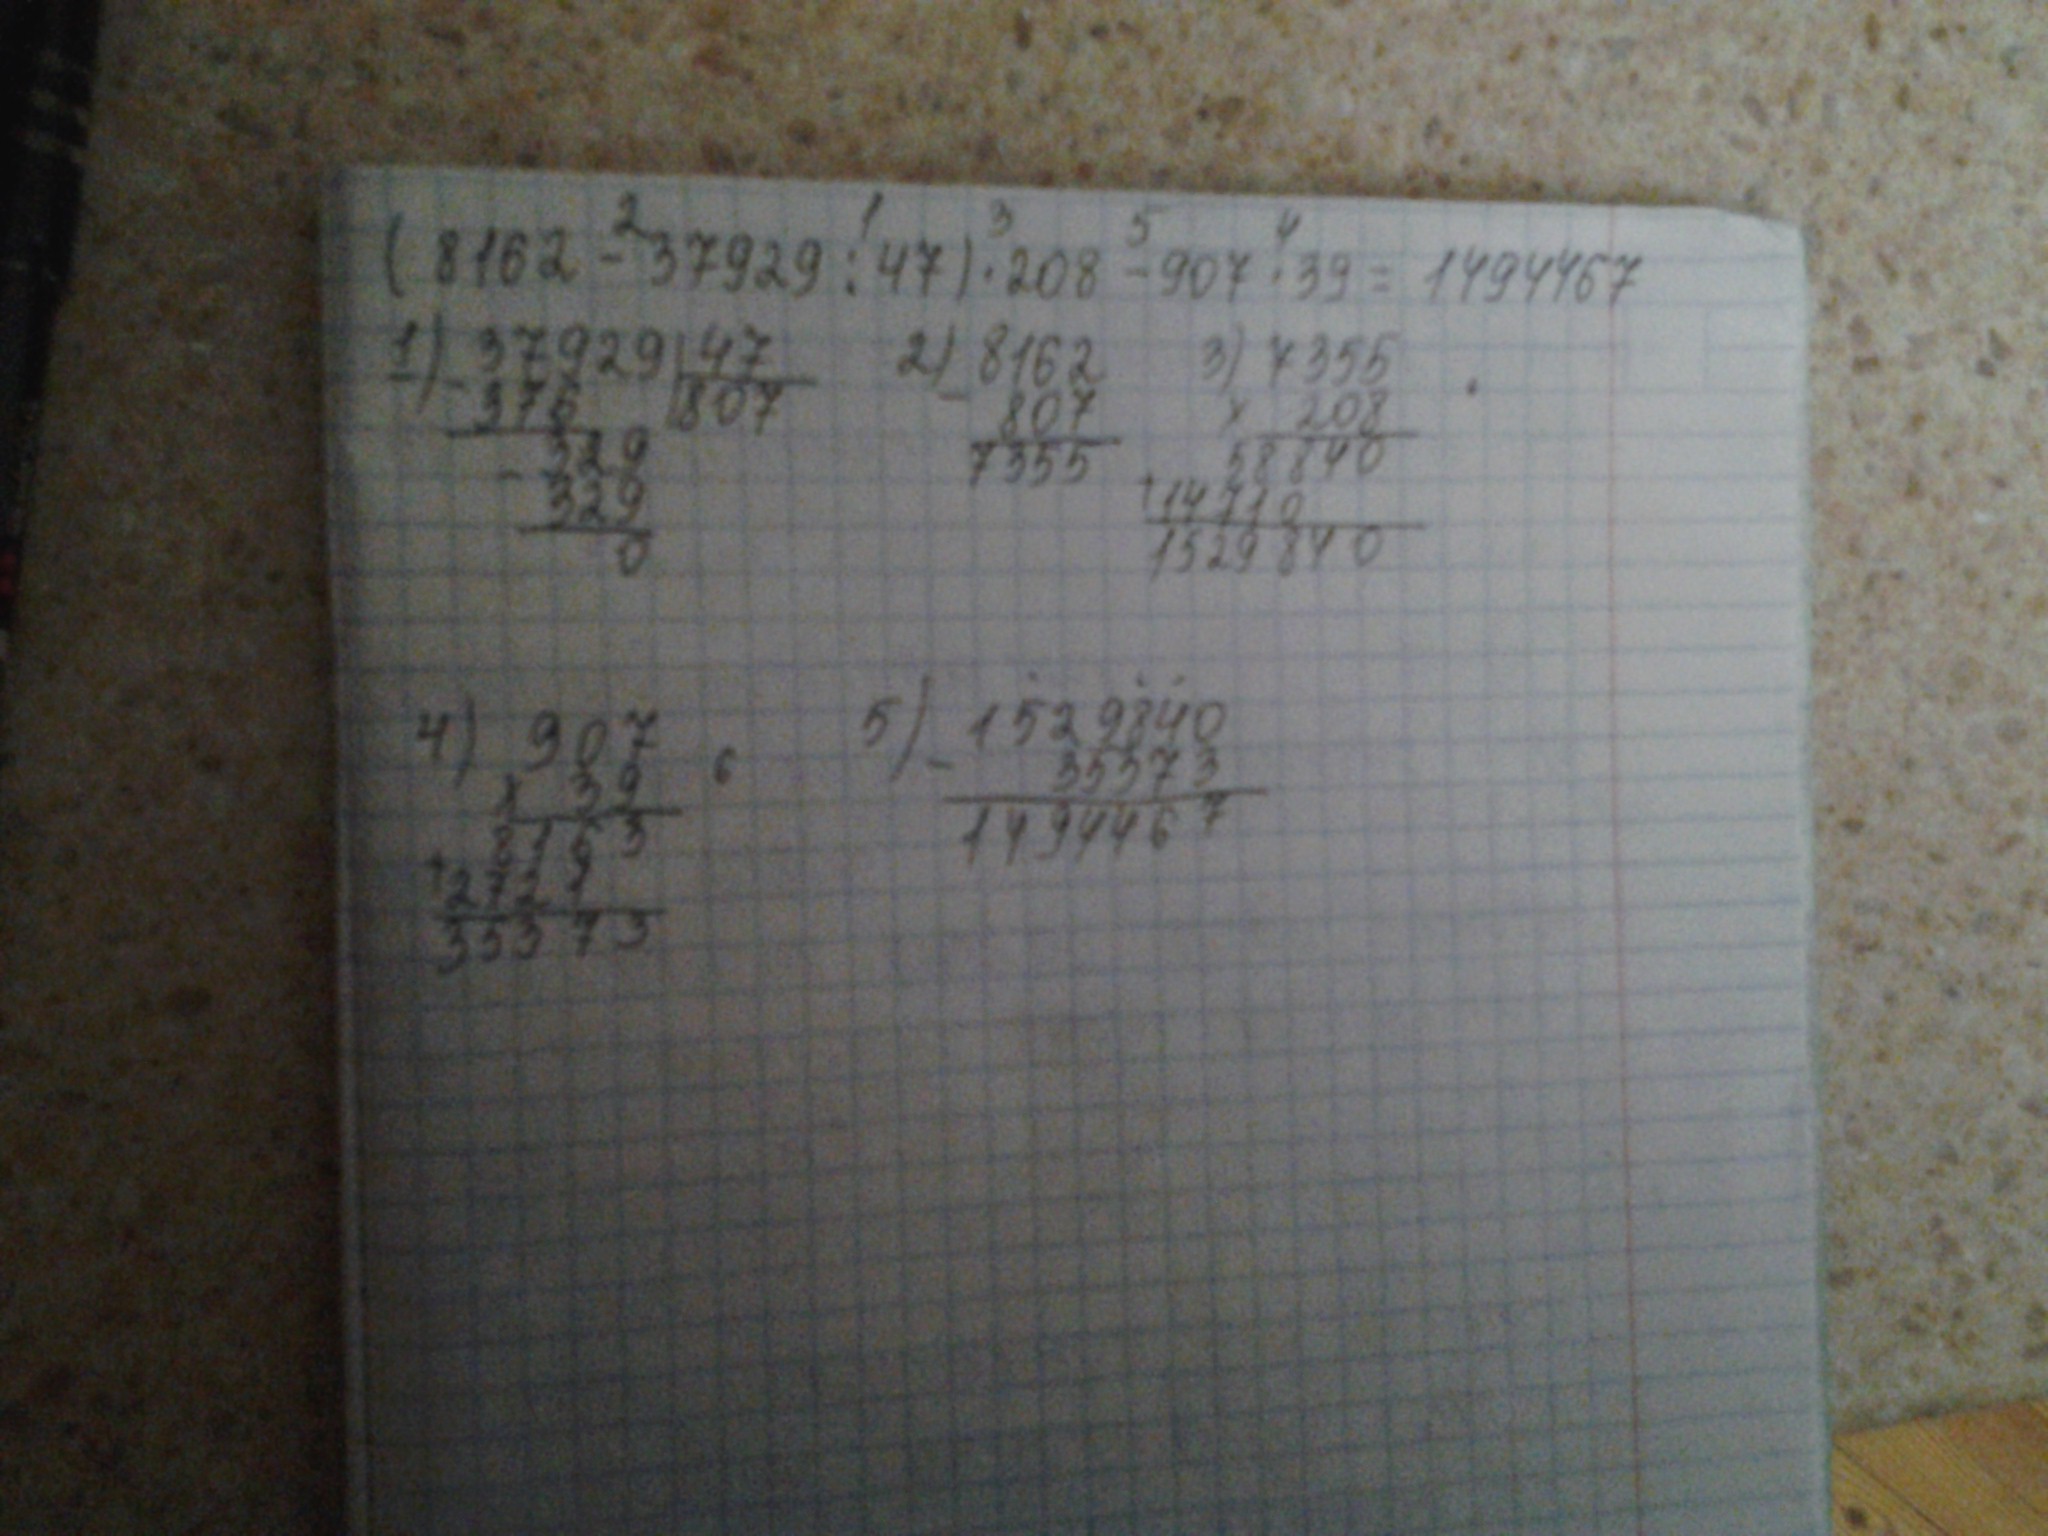 2 1 3 5 4
(8162 - 37929 : 47) · 208 - 907 · 39 = 1494467
1) - 37929 | 47
376 | 807
- 329
329
0
2) - 8162
807
7355
3) 7355
x 208
58840
+ 14710
1529840
4) 907
x 39
8163
+ 2721
35373
6
5) - 1529840
35373
1494467